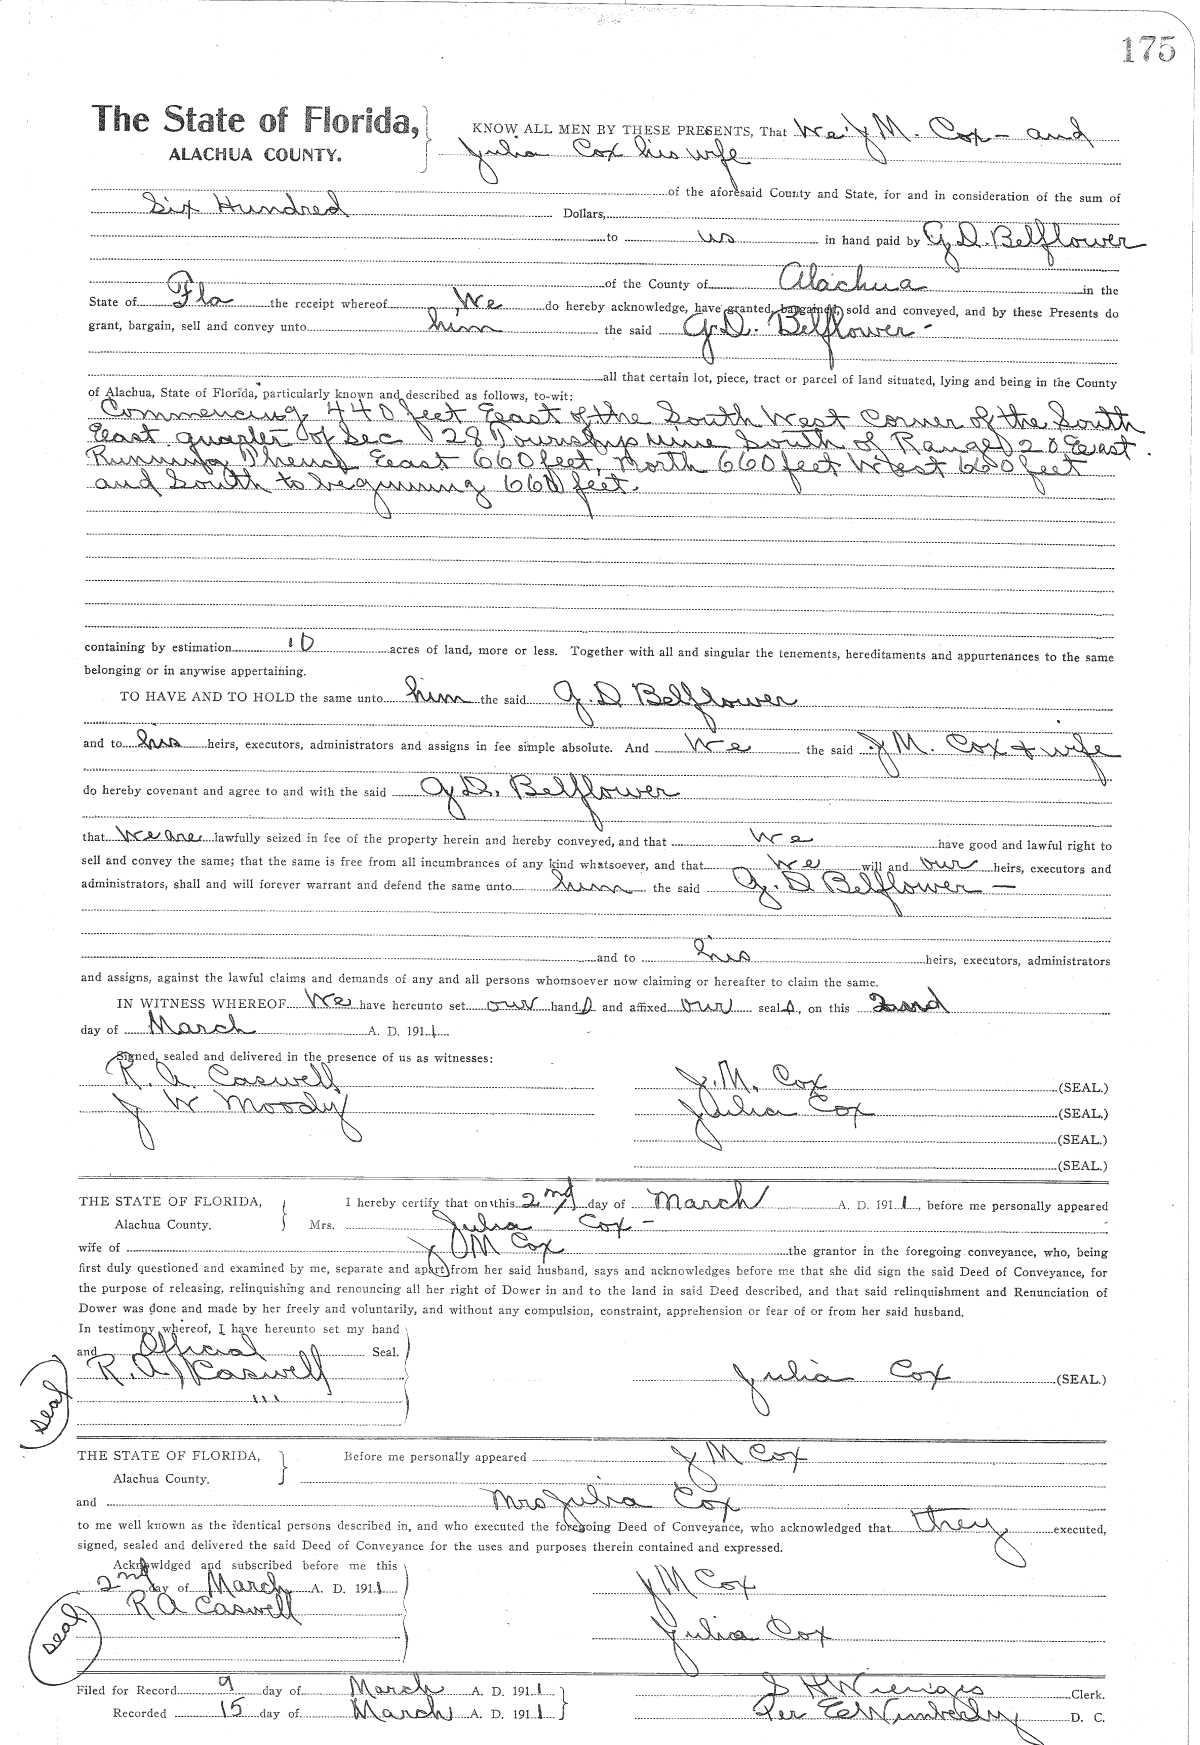 175
The State of Florida, KNOW ALL MEN BY THESE PRESENTS, That We J M. Cox - and
ALACHUA COUNTY. Julia Cox his wife
of the aforesaid County and State, for and in consideration of the sum of
Six Hundred Dollars,
to us in hand paid by G. D. Belflower
of the County of Alachua in the
State of Fla the receipt whereof We do hereby acknowledge, have granted, bargained, sold and conveyed, and by these Presents do
grant, bargain, sell and convey unto him the said G. D. Belflower -
all that certain lot, piece, tract or parcel of land situated, lying and being in the County
of Alachua, State of Florida, particularly known and described as follows, to-wit:
Commencing 440 feet East of the South West Corner of the South
East quarter of Sec 28 Township nine South of Range 20 East.
Running Thence East 660 feet, North 660 feet West 660 feet
and South to beginning 660 feet.
containing by estimation 10 acres of land, more or less. Together with all and singular the tenements, hereditaments and appurtenances to the same
belonging or in anywise appertaining.
TO HAVE AND TO HOLD the same unto him the said G. D Belflower
and to his heirs, executors, administrators and assigns in fee simple absolute. And We the said J M. Cox + wife
do hereby covenant and agree to and with the said G. D. Belflower
that We are lawfully seized in fee of the property herein and hereby conveyed, and that We have good and lawful right to
sell and convey the same; that the same is free from all incumbrances of any kind whatsoever, and that We will and our heirs, executors and
administrators, shall and will forever warrant and defend the same unto him the said G. D Belflower -
and to his heirs, executors, administrators
and assigns, against the lawful claims and demands of any and all persons whomsoever now claiming or hereafter to claim the same.
IN WITNESS WHEREOF We have hereunto set our hands and affixed our seals, on this 2nd
day of March A. D. 1911
Signed, sealed and delivered in the presence of us as witnesses:
R. A. Caswell J. M. Cox (SEAL.)
J W Moody Julia Cox (SEAL.)
(SEAL.)
(SEAL.)
THE STATE OF FLORIDA, I hereby certify that on this 2nd day of March A. D. 1911, before me personally appeared
Alachua County. Mrs. Julia Cox -
wife of J M Cox the grantor in the foregoing conveyance, who, being
first duly questioned and examined by me, separate and apart from her said husband, says and acknowledges before me that she did sign the said Deed of Conveyance, for
the purpose of releasing, relinquishing and renouncing all her right of Dower in and to the land in said Deed described, and that said relinquishment and Renunciation of
Dower was done and made by her freely and voluntarily, and without any compulsion, constraint, apprehension or fear of or from her said husband.
In testimony whereof, I have hereunto set my hand
and Official Seal.
R. A. Caswell Julia Cox (SEAL.)
seal
THE STATE OF FLORIDA, Before me personally appeared J M Cox
Alachua County.
and Mrs Julia Cox
to me well known as the identical persons described in, and who executed the foregoing Deed of Conveyance, who acknowledged that they executed,
signed, sealed and delivered the said Deed of Conveyance for the uses and purposes therein contained and expressed.
Acknowldged and subscribed before me this
2nd day of March A. D. 1911 J M Cox
R A Caswell
seal Julia Cox
Filed for Record 9 day of March A. D. 1911 S H Wienges Clerk.
Recorded 15 day of March A. D. 1911 Per E Wimberly D. C.